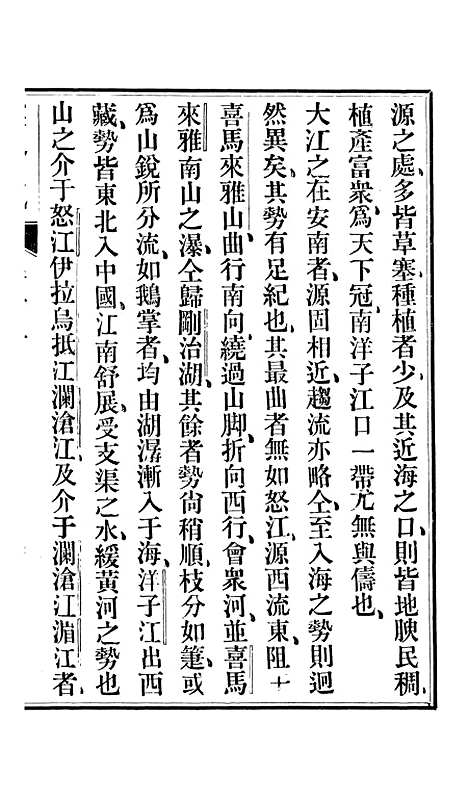 源之處、多皆草塞、種植者少、及其近海之口、則皆地腴民稠、
植產富衆、爲天下冠、南洋子江口一帶、尤無與儔也、
大江之在安南者、源固相近、趨流亦略仝、至入海之勢則迥
然異矣、其勢有足紀也、其最曲者無如怒江、源西流東、阻于
喜馬來雅山、曲行南向、繞過山脚、折向西行、會衆河、並喜馬
來雅南山之瀑、仝歸剛治湖、其餘者勢尙稍順、枝分如箑、或
爲山銳所分流、如鵝掌者、均由湖潺漸入于海、洋子江出西
藏、勢皆東北入中國、江南舒展、受支渠之水、緩黃河之勢也、
山之介于怒江伊拉烏抵江瀾滄江、及介于瀾滄江湄江者、